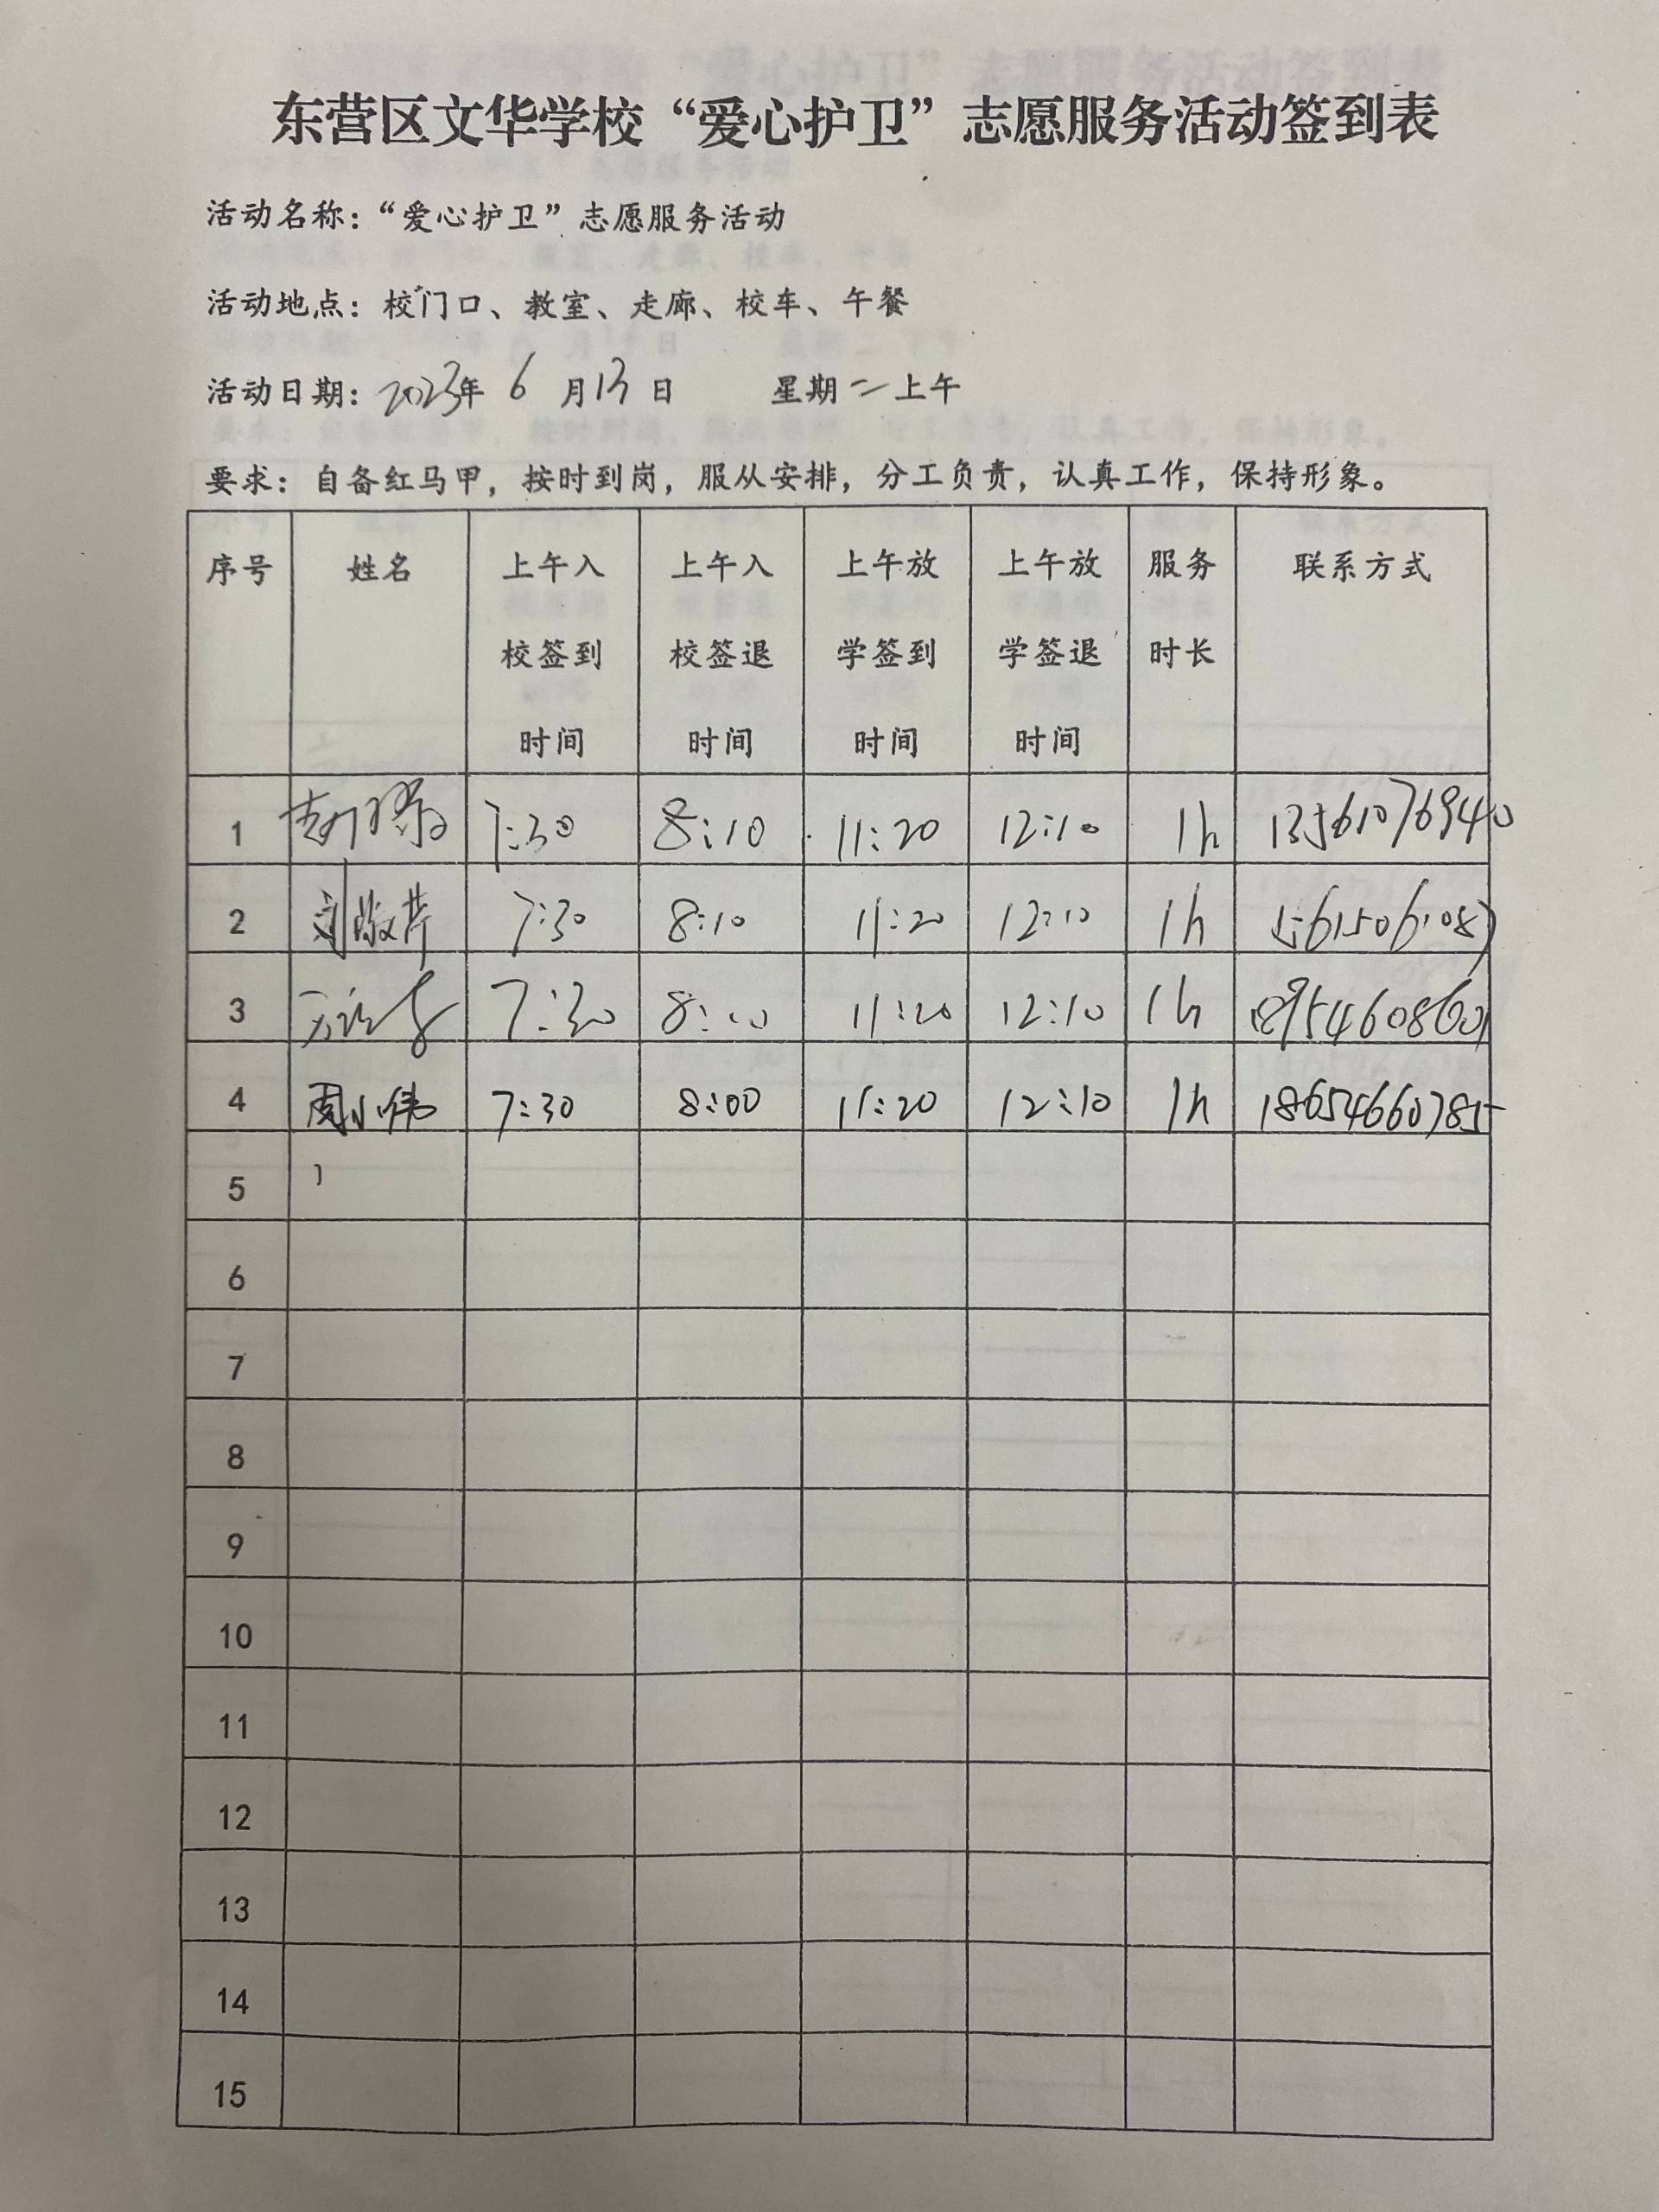 东营区文华学校“爱心护卫”志愿服务活动签到表
活动名称：“爱心护卫”志愿服务活动
活动地点：校门口、教室、走廊、校车、午餐
活动日期：2023年 6 月 13 日 星期二上午
要求：自备红马甲，按时到岗，服从安排，分工负责，认真工作，保持形象。
序号 姓名 上午入校签到时间 上午入校签退时间 上午放学签到时间 上午放学签退时间 服务时长 联系方式
1 7:30 8:10 11:20 12:10 1h 13561076940
2 刘敬芹 7:30 8:10 11:20 12:10 1h 15615061087
3 7:30 11:20 12:10 1h 18954608601
4 周小伟 7:30 8:00 11:20 12:10 1h 18654660785
5
6
7
8
9
10
11
12
13
14
15